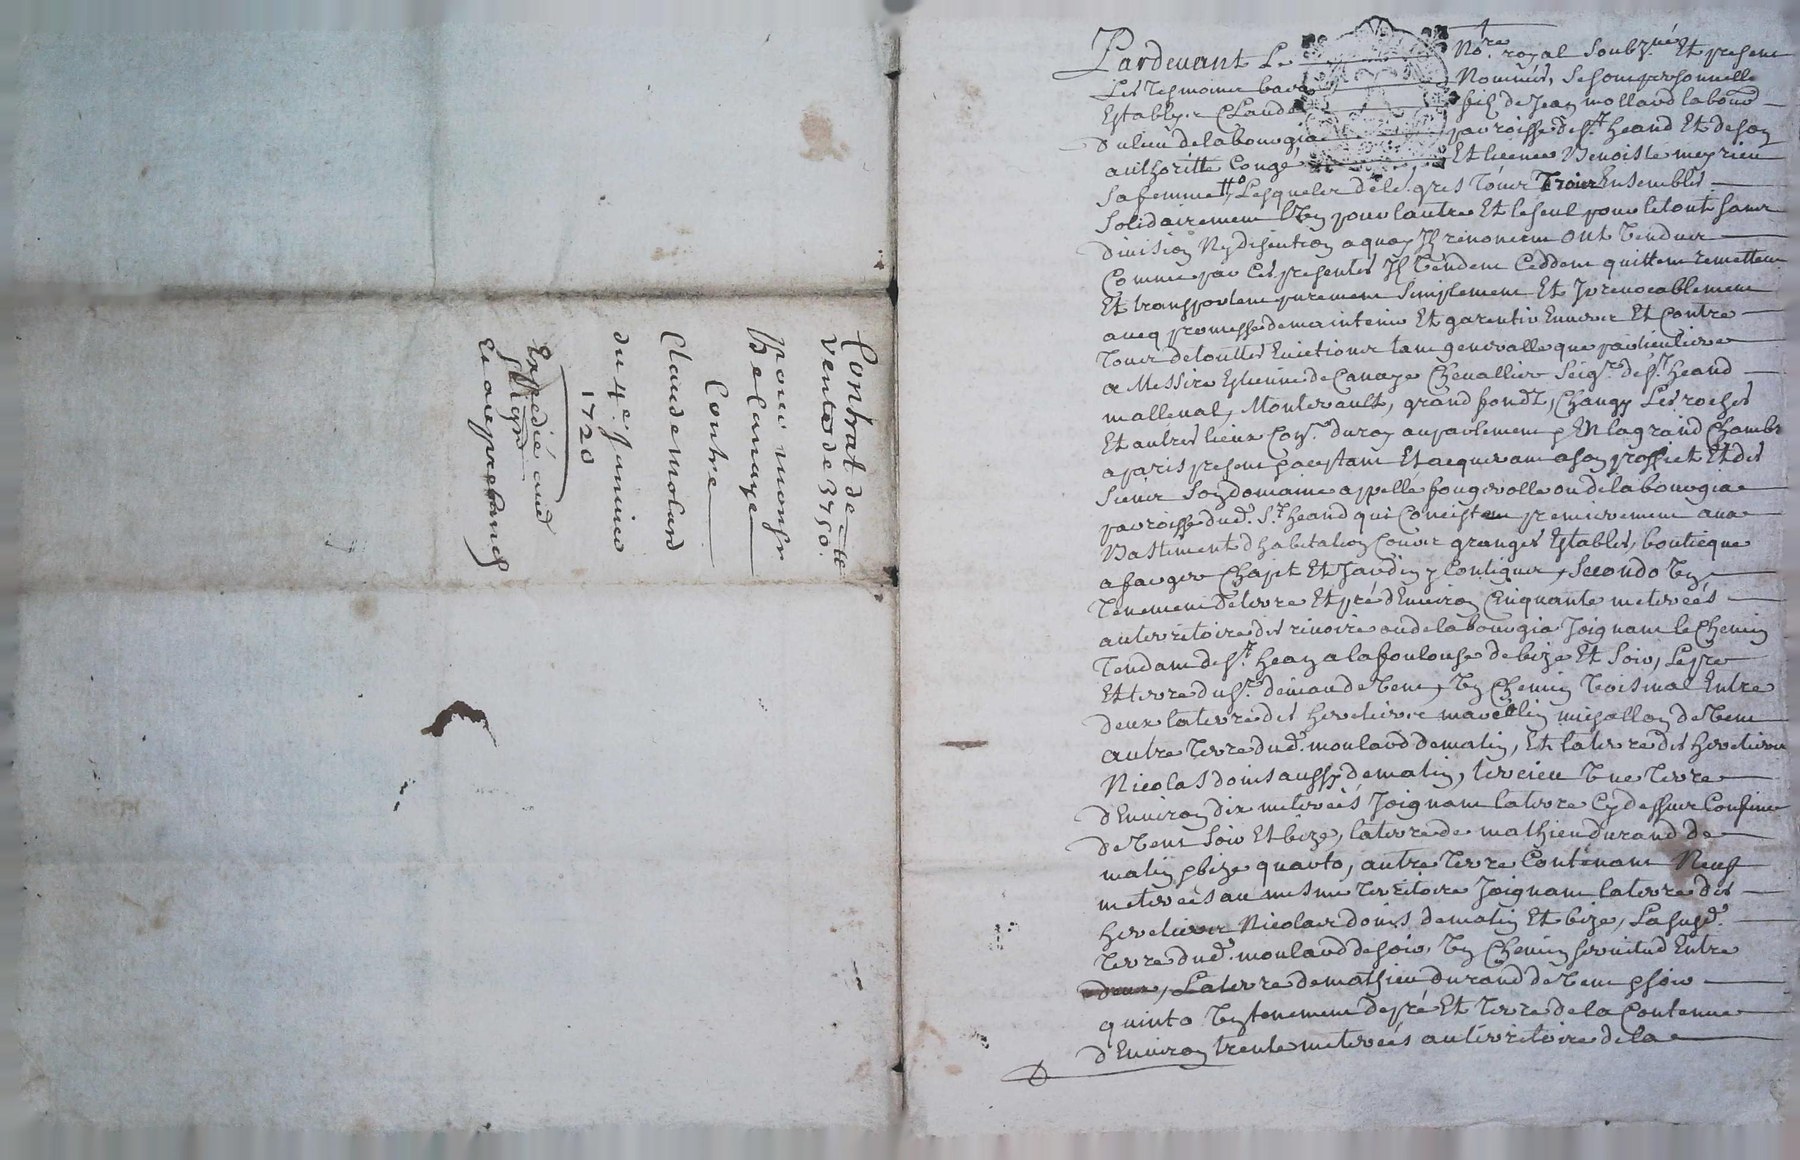 Contrat de
vente de 3750.tt
Pour monsr
De Canaye
Contre
Claude Molard
du 4e Janvier
1720
Expedié aud
Sigr
Et acepceur
Pardevant Le Nore. royal Soubznés Et present
Les Tesmoins bas Nommés, Se sont personnelle
Establys Claude fils de Jean mollard labour
Du lieu de labourgia parroisse de St. heand Et de son
authoritte Congé Et licence Benoiste meyrieu
Sa femme, Lesqueles de le. gres Tous Trois Ensembles
Solidairement l'un pour l'autre Et le seul pour le tout sans
division Ny discution a quoy Ils renoncent ont Vendus
Comme par Ces presentes Ils Vendent Ceddent quittent remettent
Et transportent purement Simplement Et Irrevocablement
avecq promesse de maintenir Et garentir Envers Et Contre
Tous de touttes Evictions tant generalle que particuliere
a Messire Estienne de Canaye Chevallier Seigr. de St. heand
malleval, Montervault, grand fondz, Changy Les roches
Et autres lieux Consr. du roy au parlement EN la grand Chambre
a paris present Et aceptant Et acquerant a son proffict Et des
Siens Son domaine appellé fougerolle ou de la bourgia
parroisse dud. St. heand qui Consiste premierement aux
Bastiment d'habitation Cours granges Estables, boutieque
a forger Chapt Et Jardin y Contigus, Secondo Un
Tenement de terre Et pré d'Environ Cinquante metterées
au territoire des rivoire ou de la bourgia Joignant le Chemin
Tendant de St. hean a la fouloufe de bize Et Soir, Le pre
Et terre du Sr. deman de Vent, Un Chemin Voisinal Entre
deux la terre des heretiers marcellin micollon de Vent
autre Terre dud. moulard de matin, Et la terre des heretiers
Nicolas doins aussy de matin, tercieu Une Terre
d'Environ dix metterées Joignant la terre Cy dessus Confinée
de Vent Soir Et bize, la terre de mathieu durand de
matin & bize quarto, autre Terre Contenant Neuf
metterées au mesme Territoire Joignant la terre des
heretiers Nicolas doins de matin Et bize, La susd.
Terre dud. moulard de soir, Un Chemin servitud Entre
deux, La terre de mathieu durand de Vent & soir
quinto Un tenement de pré Et Terre de la Contenue
d'Environ trente metterées au territoire de la